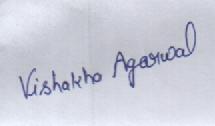 Vishakha Agarwal